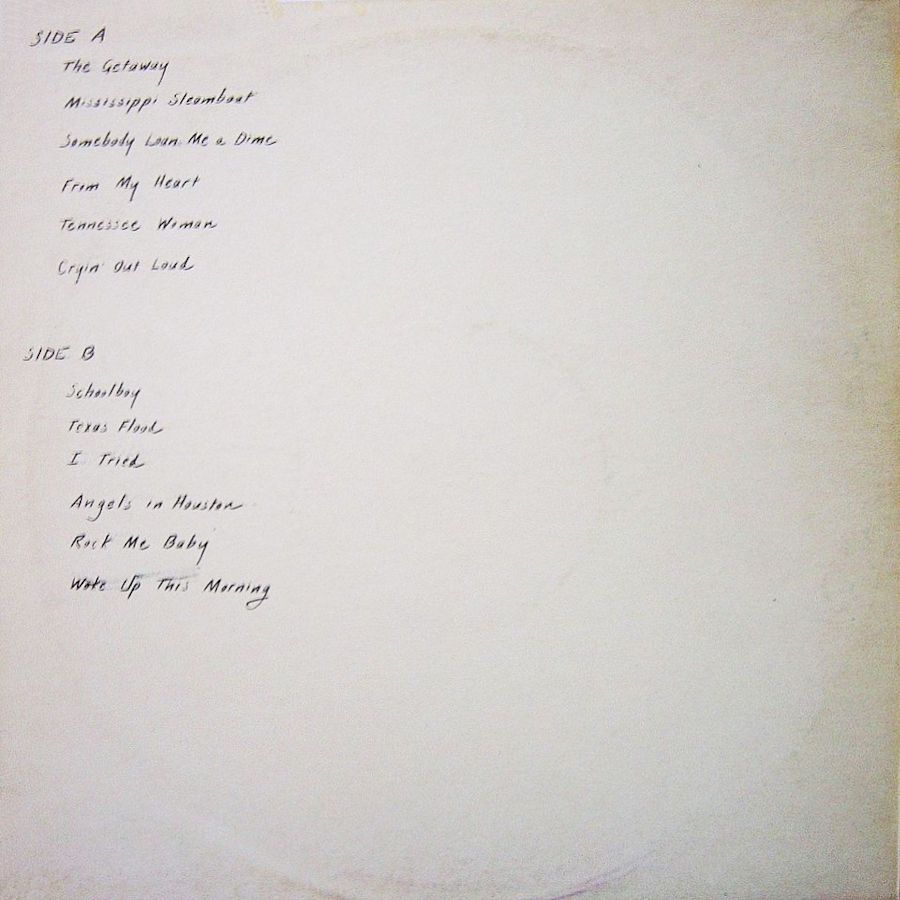 SIDE A
The Getaway
Mississippi Steamboat
Somebody Loan Me a Dime
From My Heart
Tennessee Woman
Cryin' Out Loud
SIDE B
Schoolboy
Texas Flood
I Tried
Angels in Houston
Rock Me Baby
Woke Up This Morning